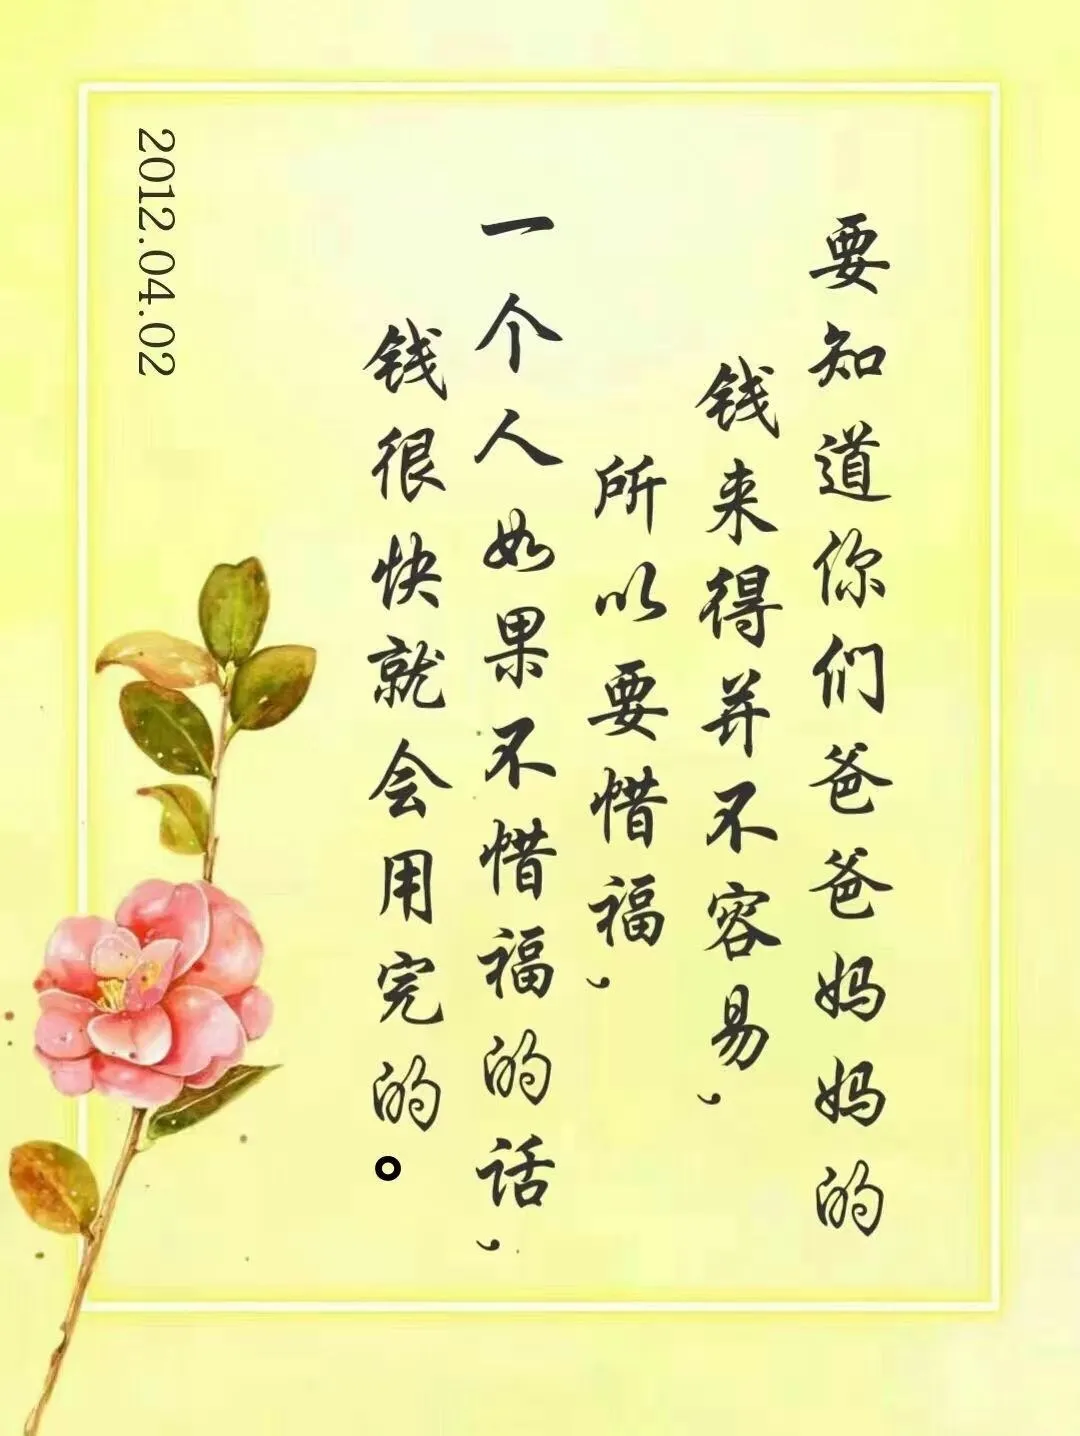 要知道你们爸爸妈妈的
钱来得并不容易,
所以要惜福,
一个人如果不惜福的话,
钱很快就会用完的。
2012.04.02